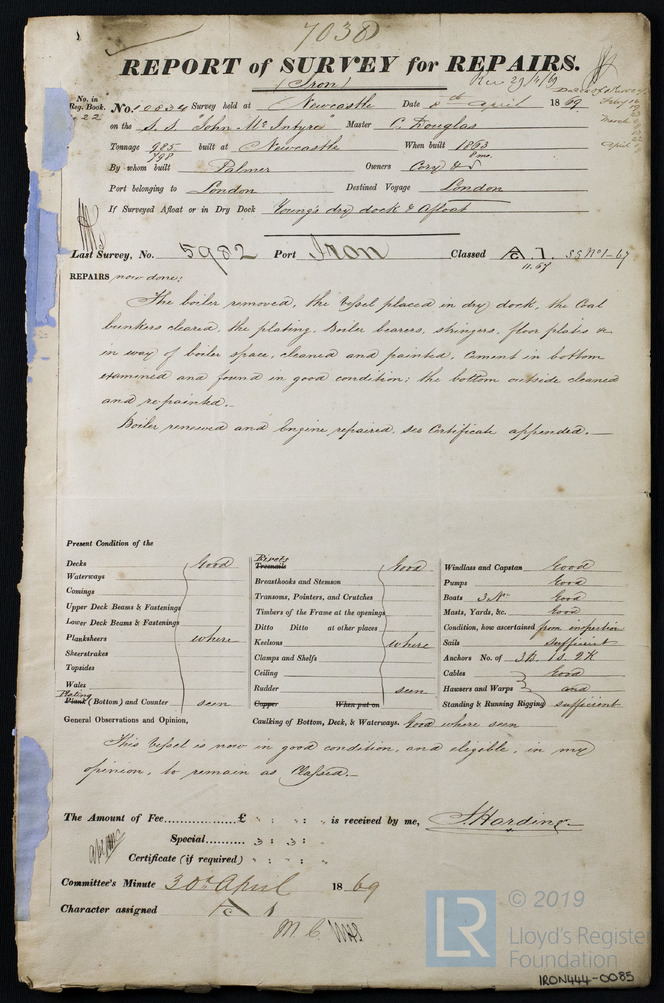 7038
REPORT of SURVEY for REPAIRS.
(Iron)
Rec 29/4/69
No. in Reg. Book.
22
No. 10834 Survey held at Newcastle Date 8th April 1869
Dates of Survey
Feby
March
April
on the S.S. "John McIntyre" Master C. Douglas
Tonnage 985 built at Newcastle When built 1863
798 8 mo.
By whom built Palmer Owners Cory & S
Port belonging to London Destined Voyage London
If Surveyed Afloat or in Dry Dock Young's dry dock & Afloat
Last Survey, No. 5982 Port Iron Classed A 1. SS No 1-67
11.67
REPAIRS now done:
The boiler removed, the Vessel placed in dry dock, the Coal
bunkers cleared, the plating, Boiler bearers, stringers, floor plates &
in way of boiler space, cleaned and painted, Cement in bottom
examined and found in good condition; the bottom outside cleaned
and re-painted.—
Boiler renewed and Engine repaired, see Certificate appended.—
Present Condition of the
Decks Good
Waterways
Comings
Upper Deck Beams & Fastenings
Lower Deck Beams & Fastenings
Planksheers where
Sheerstrakes
Topsides
Wales
Plating
Plank (Bottom) and Counter seen
Rivets
Treenails Good
Breasthooks and Stemson
Transoms, Pointers, and Crutches
Timbers of the Frame at the openings
Ditto Ditto at other places
Keelsons where
Clamps and Shelfs
Ceiling
Rudder seen
Copper When put on
Windlass and Capstan Good
Pumps Good
Boats 3 No Good
Masts, Yards, &c. Good
Condition, how ascertained from inspection
Sails sufficient
Anchors No. of 3B. 1S. 2K
Cables Good
Hawsers and Warps and
Standing & Running Rigging sufficient
General Observations and Opinion, Caulking of Bottom, Deck, & Waterways. Good where seen
This Vessel is now in good condition, and eligible, in my
opinion, to remain as Classed.—
The Amount of Fee................£ : : is received by me, J. Harding
Special.......... 3 : 3 :
Certificate (if required) : :
Committee's Minute 30th April 1869
Character assigned A 1
M.C.
LR
© 2019
Lloyd's Register
Foundation
IRON444-0085